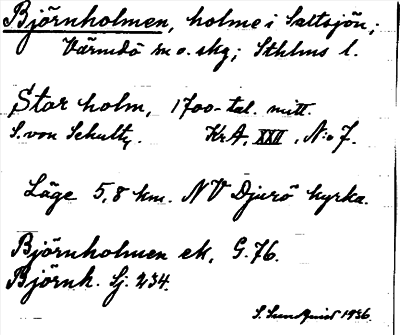 Björnholmen, holme i Saltsjön;
Värmdö sn o. skg; Sthlms l.
Stor holm, 1700-tal. mitt.
S. von Schultz. KrA, XXII, N:o 7.
Läge 5,8 km. NV Djurö kyrka.
Björnholmen ek. G. 76.
Björnh. Sj. 234.
S. Sundquist 1936.